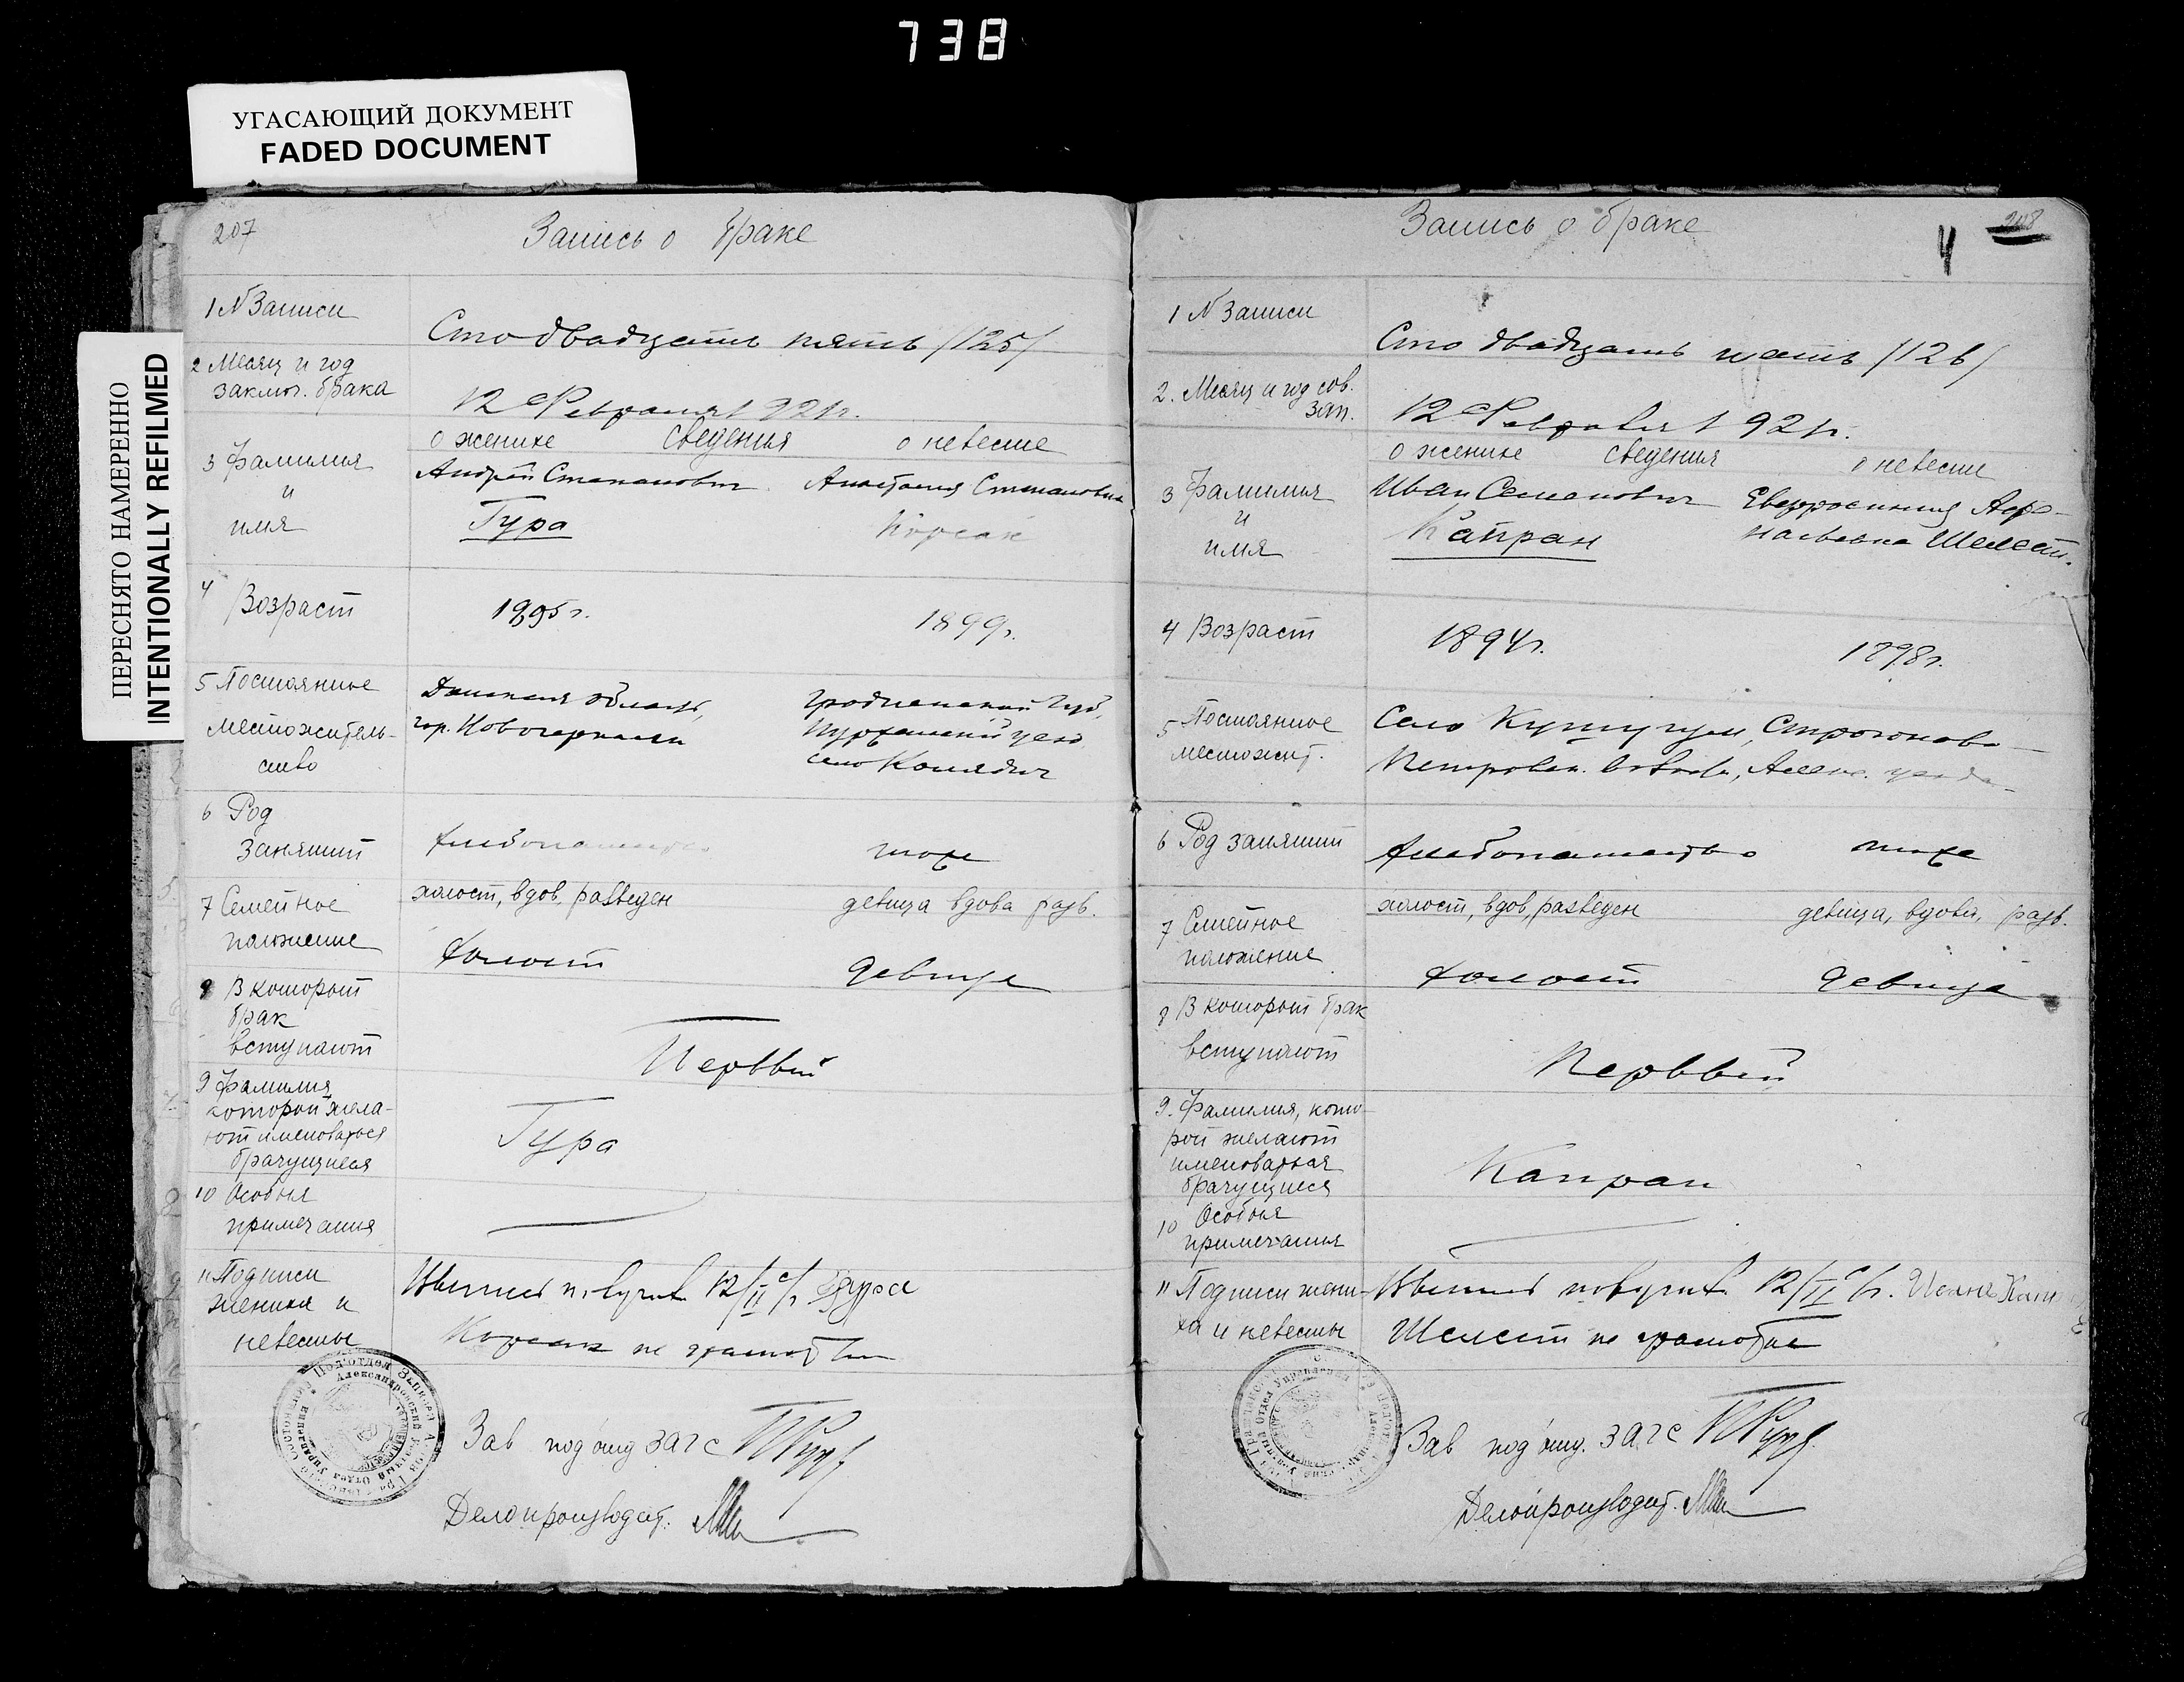 738
УГАСАЮЩИЙ ДОКУМЕНТ
FADED DOCUMENT
ПЕРЕСНЯТО НАМЕРЕННО
INTENTIONALLY REFILMED
207
Запись о браке
1 N Записи
Сто двадцать пять /125/
2 Месяц и год
заключ. брака
12 Февраля 1921г.
о женихе сведения о невесте
3 Фамилия
и
имя
Андрей Степанович Анастасия Степановна
Гура Корсак
4 Возраст
1895г. 1899г.
5 Постоянное
местожитель-
ство
Донская область, Гродненской губ,
гор. Новочеркасск уезд
село
6 Род
занятий
хлебопашество тоже
7 Семейное
положение
холост, вдов, разведен девица вдова разв.
холост девица
8 В который
брак
вступают
Первый
9 Фамилия
которой жела-
ют именоваться
брачущиеся
Гура
10 Особыя
примечания
11 Подписи
жениха и
невесты
Выпись получил 12/II с/г Гура
Корсак не грамотная
Зав под'отд ЗАГС
Делопроизводит.
208
4
Запись о браке
1 N Записи
Сто двадцать шесть /126/
2. Месяц и год сов.
зап.
12 Февраля 1921г.
о женихе сведения о невесте
3 Фамилия
и
имя
Иван Семенович Евфросиния Афа-
Капран насьевна Шелест.
4 Возраст
1894г. 1898г.
5 Постоянное
местожит.
Село Кушугум,
Петровск. уезда
6 Род занятий
хлебопашество тоже
7 Семейное
положение
холост, вдов, разведен девица, вдова, разв.
холост девица
8 В который брак
вступают
Первый
9. Фамилия, кото-
рой желают
именоваться
брачущиеся
Капран
10 Особыя
примечания
11 Подписи жени-
ха и невесты
Выпись получил 12/II с/г.
Шелест не грамотная
Зав под'отд. ЗАГС
Делопроизводит.